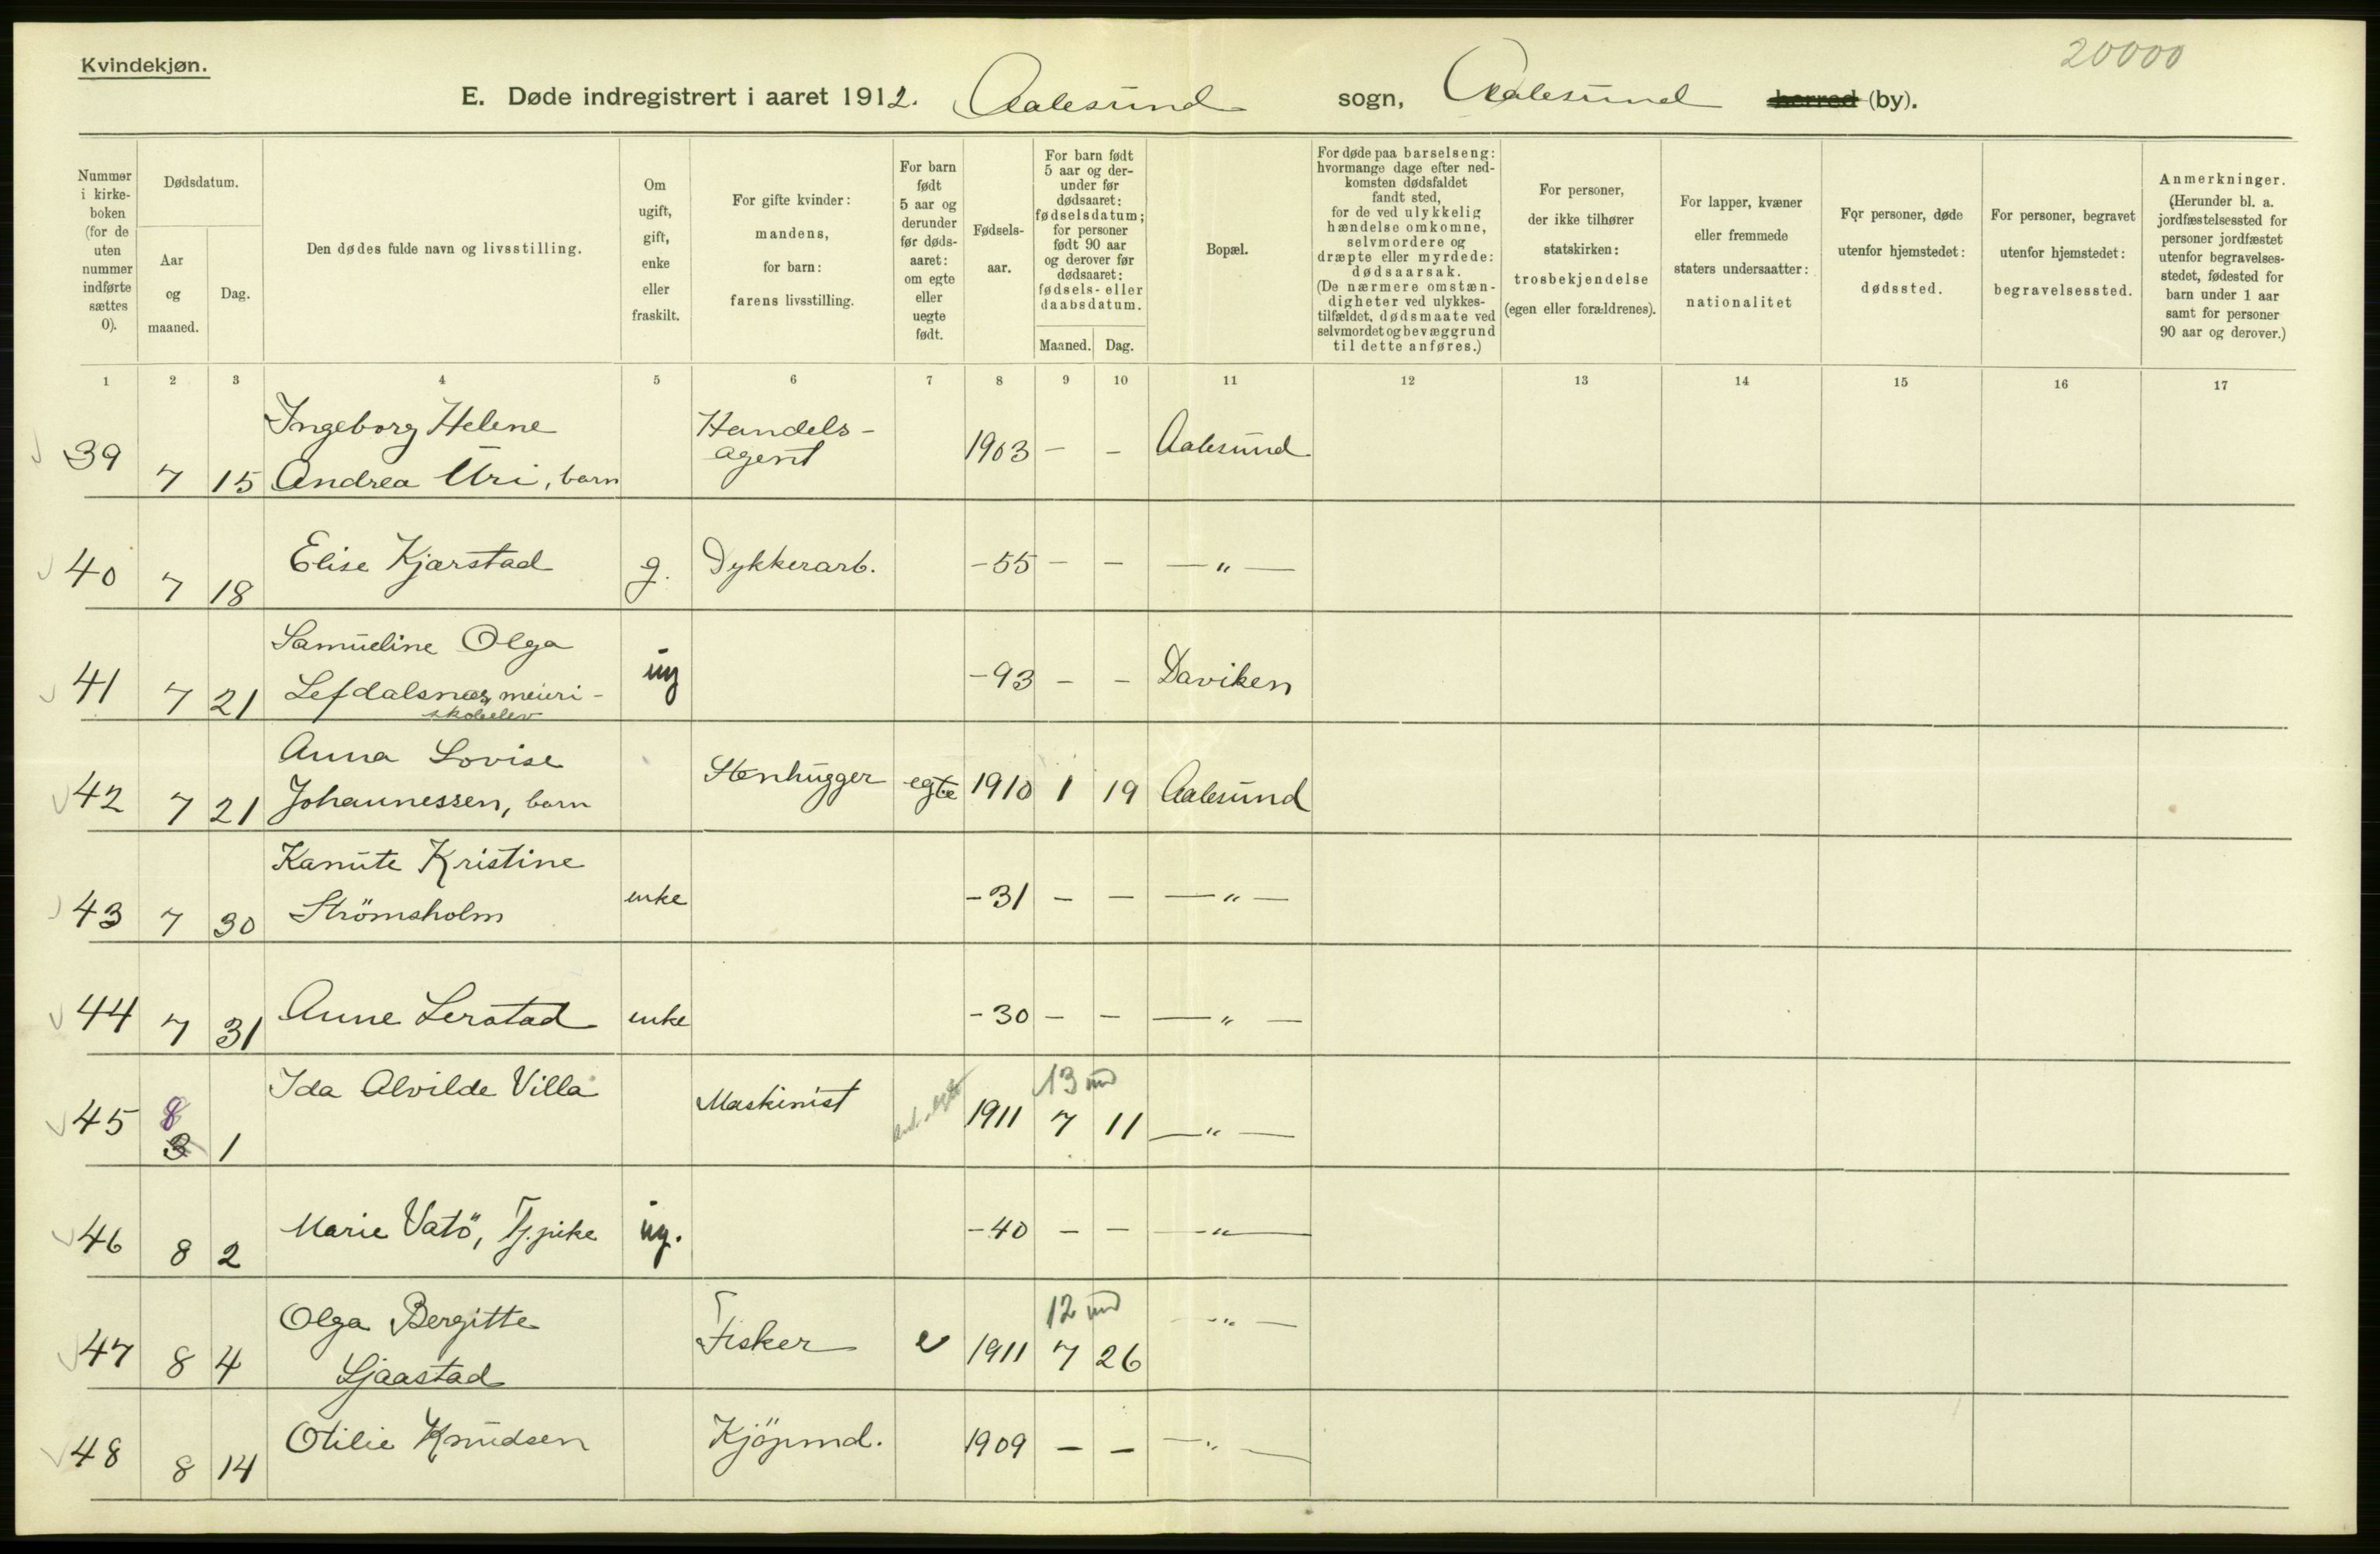 Kvindekjøn.
20000
E. Døde indregistrert i aaret 1912. Aalesund sogn, Aalesund herred (by).
Nummer i kirkeboken (for de uten nummer indførte sættes 0).
Dødsdatum.
Aar og maaned.
Dag.
Den dødes fulde navn og livsstilling.
Om ugift, gift, enke eller fraskilt.
For gifte kvinder: mandens, for barn: farens livsstilling.
For barn født 5 aar og derunder før dødsaaret: om egte eller uegte født.
Fødselsaar.
For barn født 5 aar og derunder før dødsaaret: fødselsdatum; for personer født 90 aar og derover før dødsaaret: fødsels- eller daabsdatum.
Maaned. Dag.
Bopæl.
For døde paa barselseng: hvormange dage efter nedkomsten dødsfaldet fandt sted, for de ved ulykkelig hændelse omkomne, selvmordere og dræpte eller myrdede: dødsaarsak. (De nærmere omstændigheter ved ulykkestilfældet, dødsmaate ved selvmordet og bevæggrund til dette anføres.)
For personer, der ikke tilhører statskirken: trosbekjendelse (egen eller forældrenes).
For lapper, kvæner eller fremmede staters undersaatter: nationalitet
For personer, døde utenfor hjemstedet: dødssted.
For personer, begravet utenfor hjemstedet: begravelsessted.
Anmerkninger. (Herunder bl. a. jordfæstelsessted for personer jordfæstet utenfor begravelsesstedet, fødested for barn under 1 aar samt for personer 90 aar og derover.)
1 2 3 4 5 6 7 8 9 10 11 12 13 14 15 16 17
39 7 15 Ingeborg Helene Andrea Uri, barn Handelsagent 1903 - - Aalesund
40 7 18 Elise Kjærstad g. Dykkerarb. -55 - - —"—
41 7 21 Samueline Olga Lefdalsnæs, meieriskoleelev ug -93 - - Daviken
42 7 21 Anna Lovise Johannessen, barn Stenhugger egte 1910 1 19 Aalesund
43 7 30 Kanute Kristine Strömsholm enke -31 - - —"—
44 7 31 Anne Lerstad enke -30 - - —"—
45 8 3 1 Ida Alvilde Villa Maskinist 1911 13 md 7 11 —"—
46 8 2 Marie Vatö, Tj.pike ug. -40 - - —"—
47 8 4 Olga Bergitte Sjaastad Fisker e 1911 12 md 7 26 —"—
48 8 14 Otilie Knudsen Kjöpmd. 1909 - - —"—